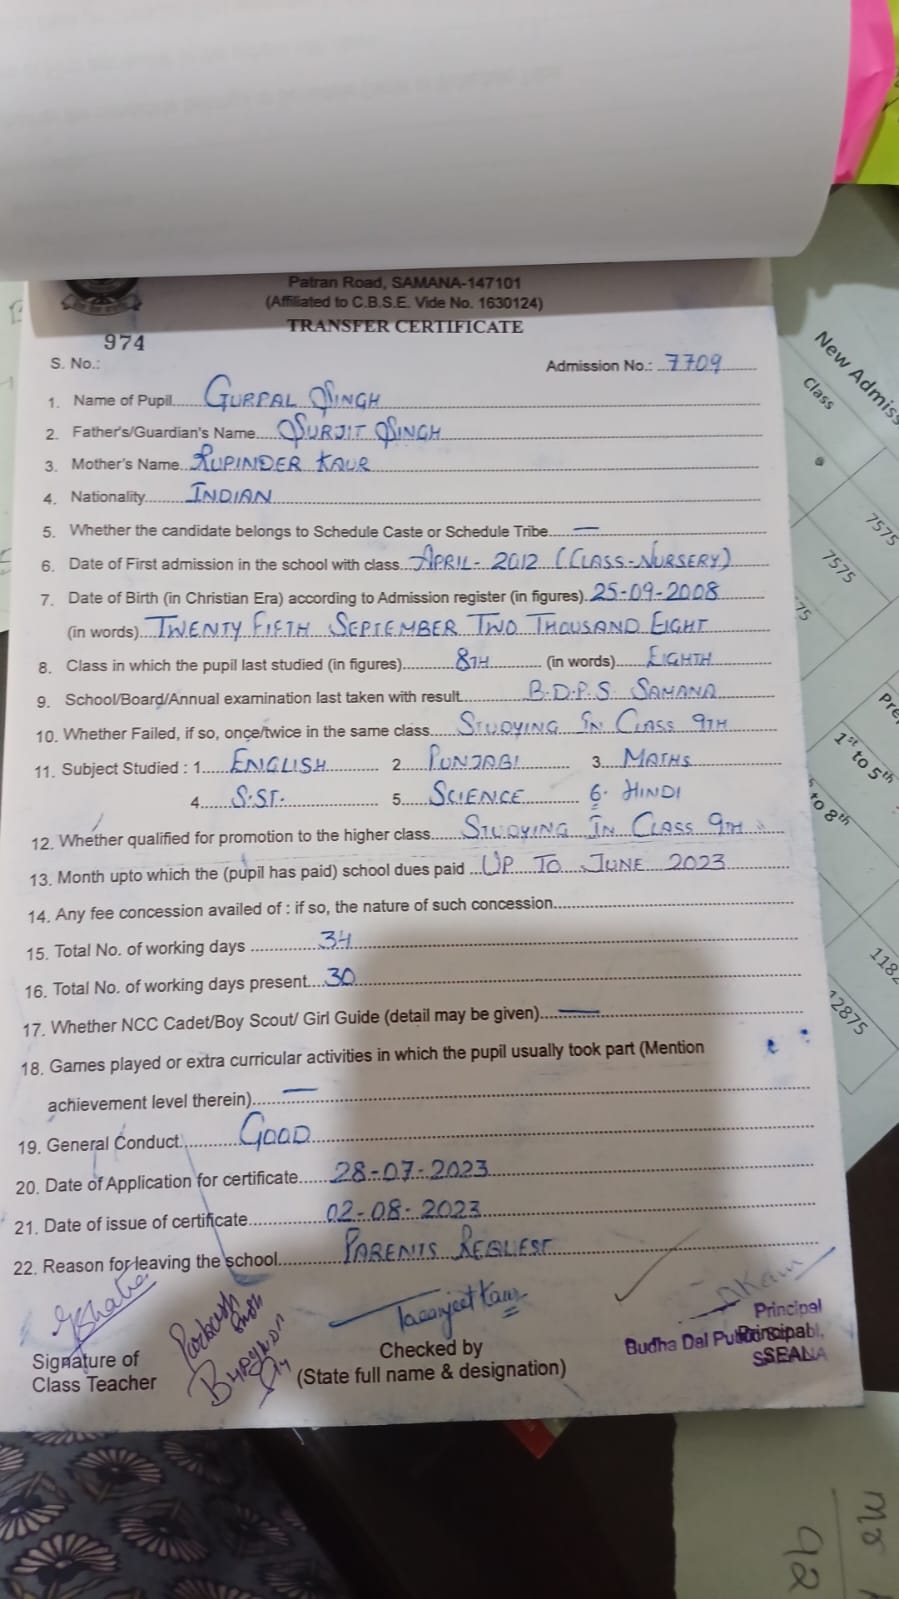 Patran Road, SAMANA-147101
(Affiliated to C.B.S.E. Vide No. 1630124)
TRANSFER CERTIFICATE
974
S. No.: Admission No.: 7709
1. Name of Pupil GURPAL SINGH
2. Father's/Guardian's Name SURJIT SINGH
3. Mother's Name RUPINDER KAUR
4. Nationality INDIAN
5. Whether the candidate belongs to Schedule Caste or Schedule Tribe —
6. Date of First admission in the school with class APRIL - 2012 (CLASS-NURSERY)
7. Date of Birth (in Christian Era) according to Admission register (in figures). 25-09-2008
(in words) TWENTY FIFTH SEPTEMBER TWO THOUSAND EIGHT
8. Class in which the pupil last studied (in figures) 8TH (in words) EIGHTH
9. School/Board/Annual examination last taken with result B.D.P.S. SAMANA
10. Whether Failed, if so, once/twice in the same class STUDYING IN CLASS 9TH
11. Subject Studied : 1. ENGLISH 2. PUNJABI 3. MATHS
4. S.ST. 5. SCIENCE 6. HINDI
12. Whether qualified for promotion to the higher class STUDYING IN CLASS 9TH
13. Month upto which the (pupil has paid) school dues paid UP TO JUNE 2023
14. Any fee concession availed of : if so, the nature of such concession
15. Total No. of working days 34
16. Total No. of working days present 30
17. Whether NCC Cadet/Boy Scout/ Girl Guide (detail may be given) —
18. Games played or extra curricular activities in which the pupil usually took part (Mention
achievement level therein) —
19. General Conduct GOOD
20. Date of Application for certificate 28-07-2023
21. Date of issue of certificate 02-08-2023
22. Reason for leaving the school PARENTS REQUEST
Signature of
Class Teacher
Checked by
(State full name & designation)
Principal
Budha Dal
Principal
SEAL
New Admiss
Class
7575
7575
1st to 5th
to 8th
1182
12875
me
92